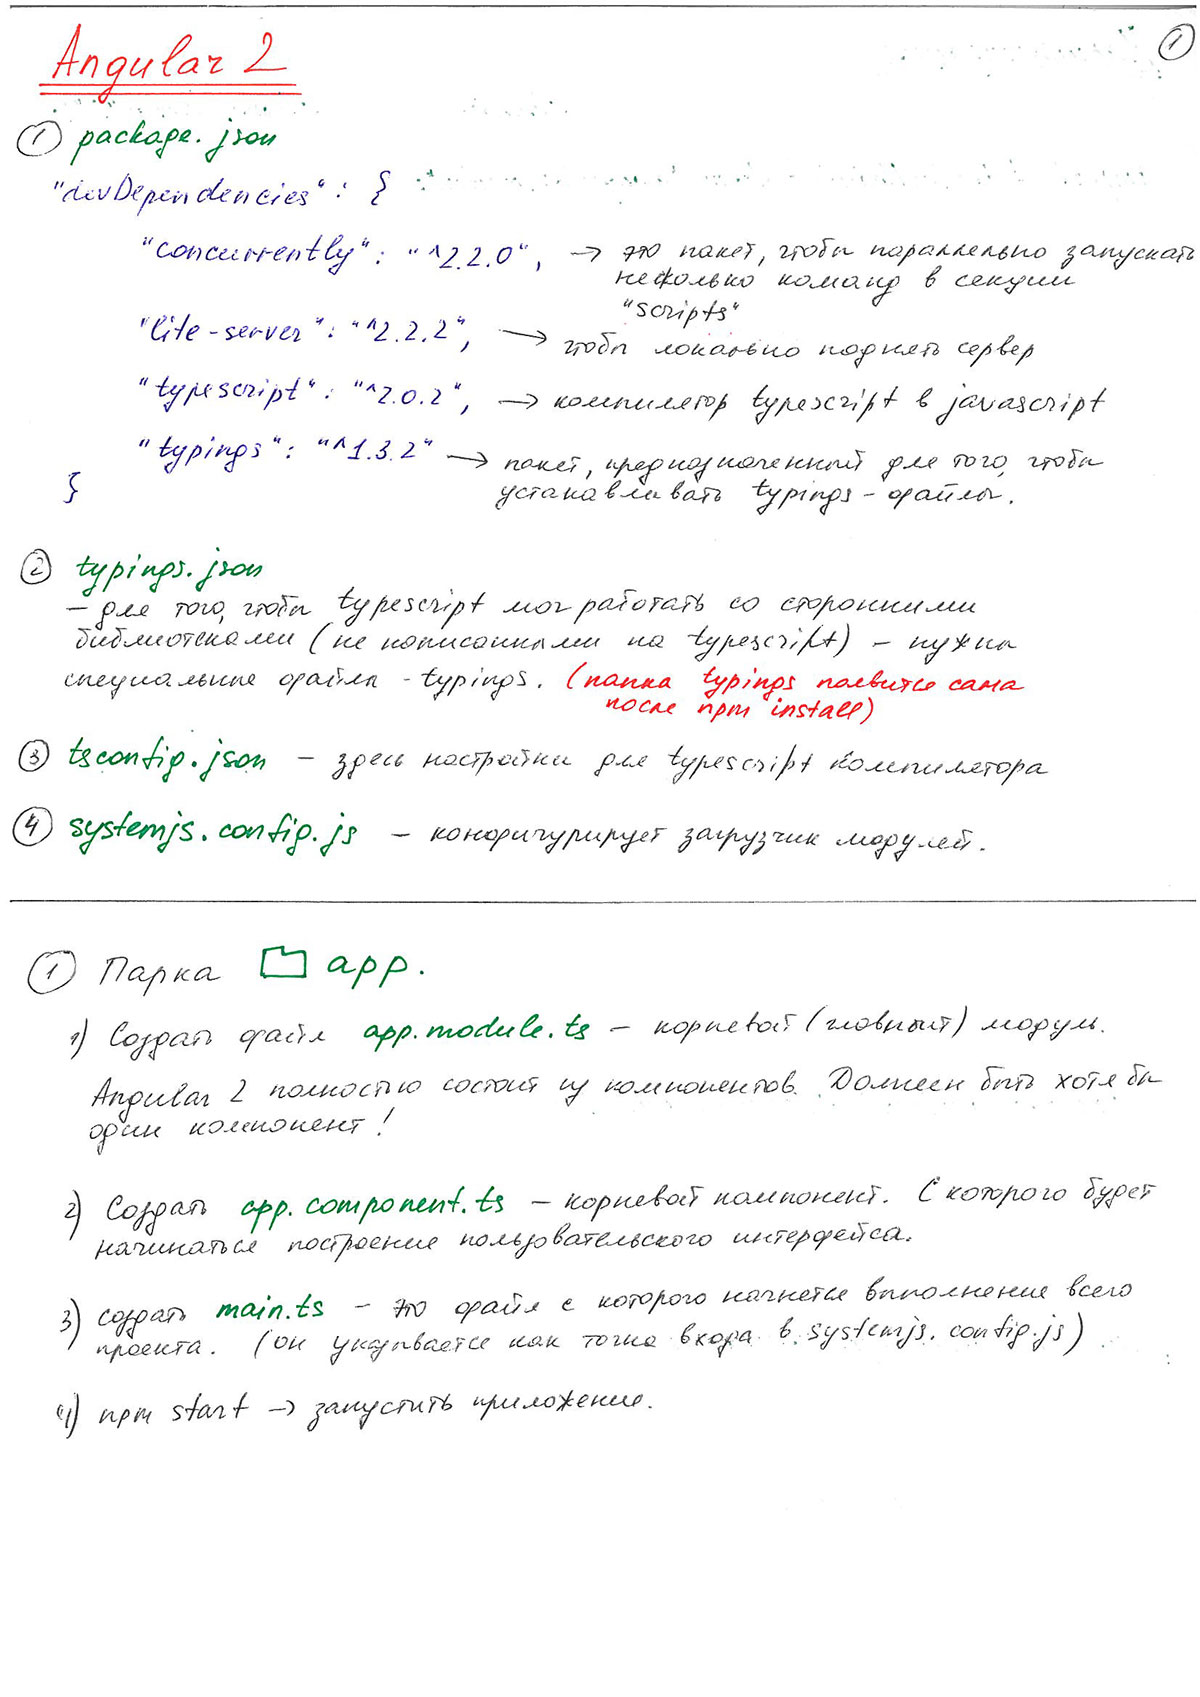 1
Angular 2
1 package.json
"devDependencies": {
"concurrently": "^2.2.0", → это пакет, чтобы параллельно запускать
несколько команд в секции
"scripts"
"lite-server": "^2.2.2", → чтобы локально поднять сервер
"typescript": "^2.0.2", → компилятор typescript в javascript
"typings": "^1.3.2" → пакет, предназначенный для того, чтобы
устанавливать typings-файлы.
}
2 typings.json
– для того, чтобы typescript мог работать со сторонними
библиотеками (не написанными на typescript) – нужны
специальные файлы - typings. (папка typings появится сама
после npm install)
3 tsconfig.json – здесь настройки для typescript компилятора
4 systemjs.config.js – конфигурирует загрузчик модулей.
1 Парка app.
1) Создать файл app.module.ts – корневой (главный) модуль.
Angular 2 полностью состоит из компонентов. Должен быть хотя бы
один компонент!
2) Создать app.component.ts – корневой компонент. С которого будет
начинаться построение пользовательского интерфейса.
3) создать main.ts – это файл с которого начнется выполнение всего
проекта. (он указывается как точка входа в systemjs.config.js)
4) npm start → запустить приложение.